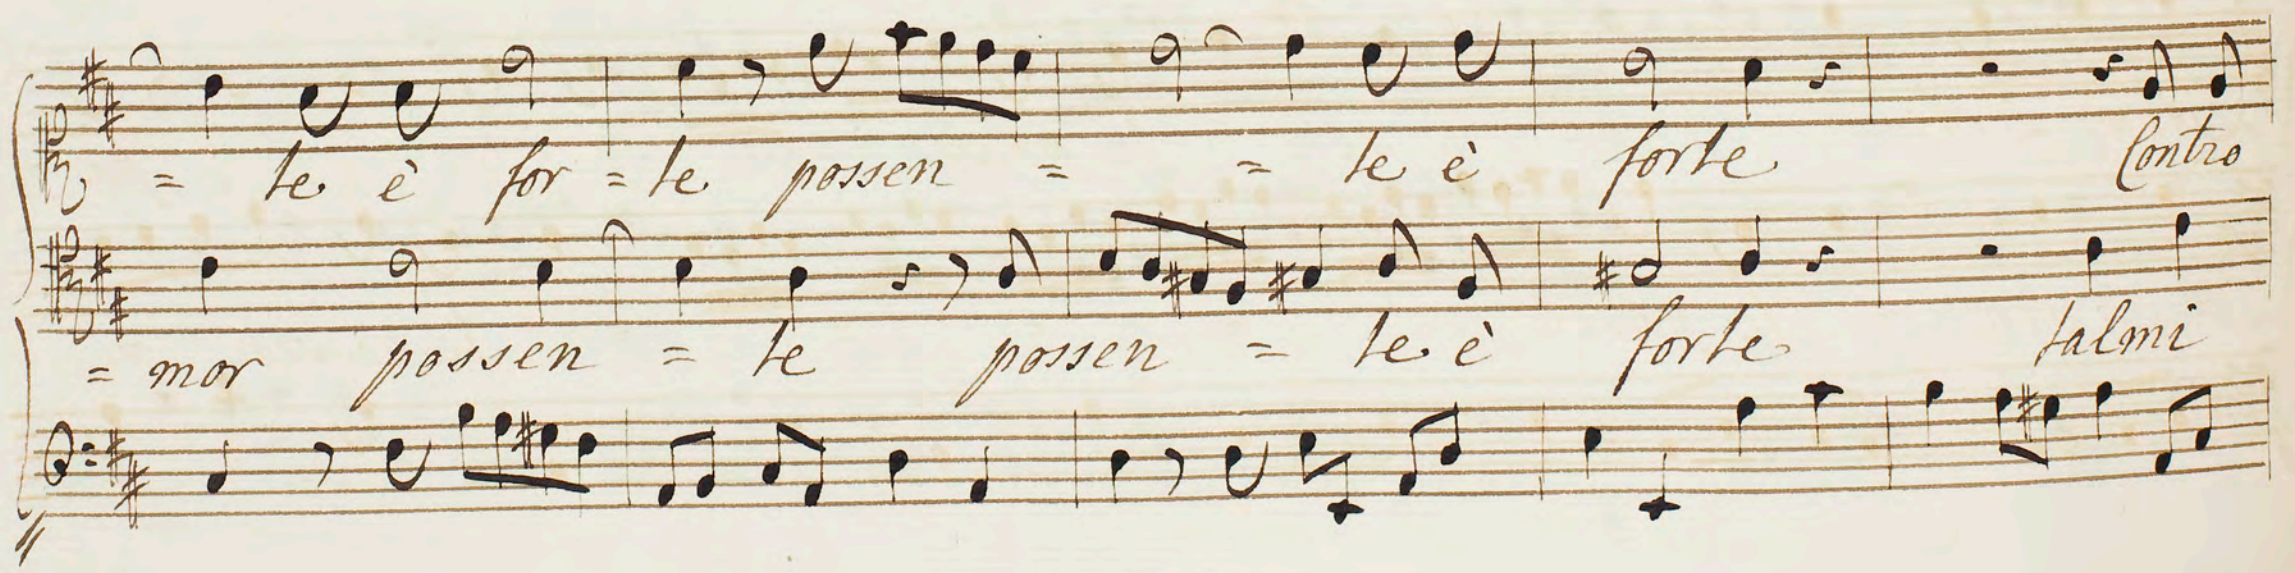 = te è for = te possen = = te è forte Contro
= mor possen = te possen = te è forte talmi